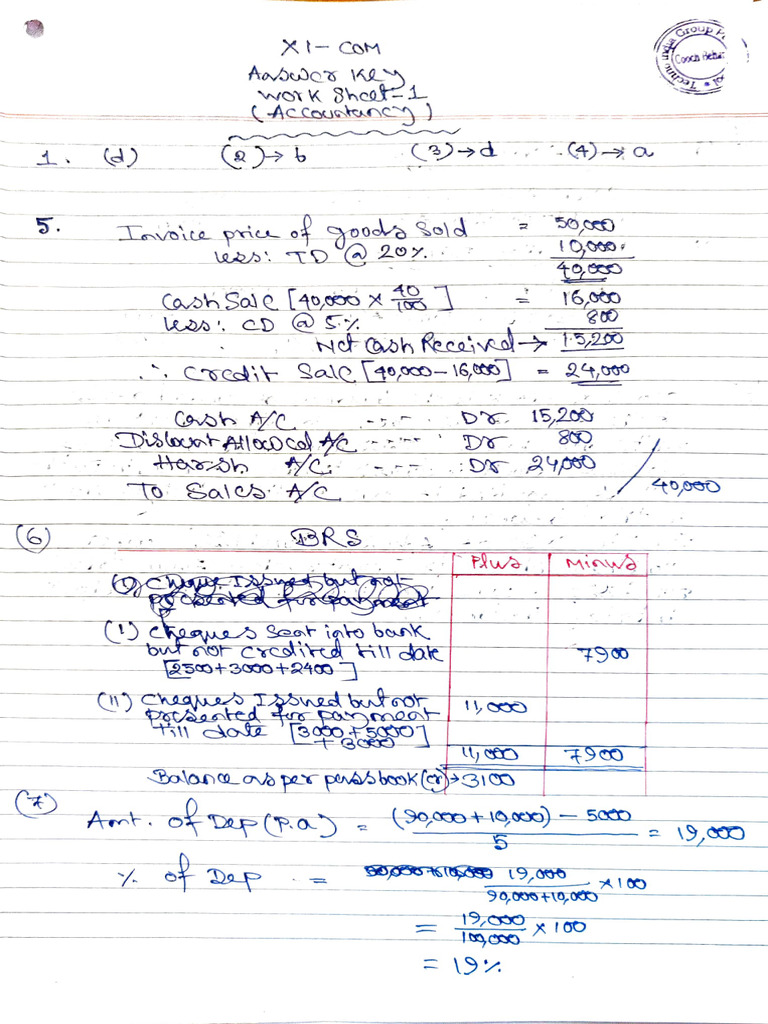 XI - COM
Answer Key
Work Sheet-1
(Accountancy)
Techno India Group P
Cooch Behar
1. (d) (2)→ b (3)→d (4)→ a
5. Invoice price of goods Sold = 50,000
less: TD @ 20% 10,000
40,000
Cash Sale [40,000 × 40/100] = 16,000
less: CD @ 5% 800
Net Cash Received → 15,200
∴ Credit Sale [40,000 - 16,000] = 24,000
Cash A/C ---- Dr 15,200
Discount Allowed A/C ---- Dr 800
Harsh A/C ---- Dr 24,000
To Sales A/C 40,000
(6) BRS
Plus Minus
(i) Cheque Issued but not
presented for payment
(i) Cheques sent into bank
but not credited till date 7900
[2500+3000+2400]
(ii) Cheques Issued but not
presented for payment 11,000
till date [3000 + 5000
+ 3000]
11,000 7900
Balance as per passbook (cr)→ 3100
(7) Amt. of Dep (P.a) = (90,000 + 10,000) - 5000 / 5 = 19,000
% of Dep = 19,000 / 90,000+10,000 × 100
= 19,000 / 100,000 × 100
= 19%